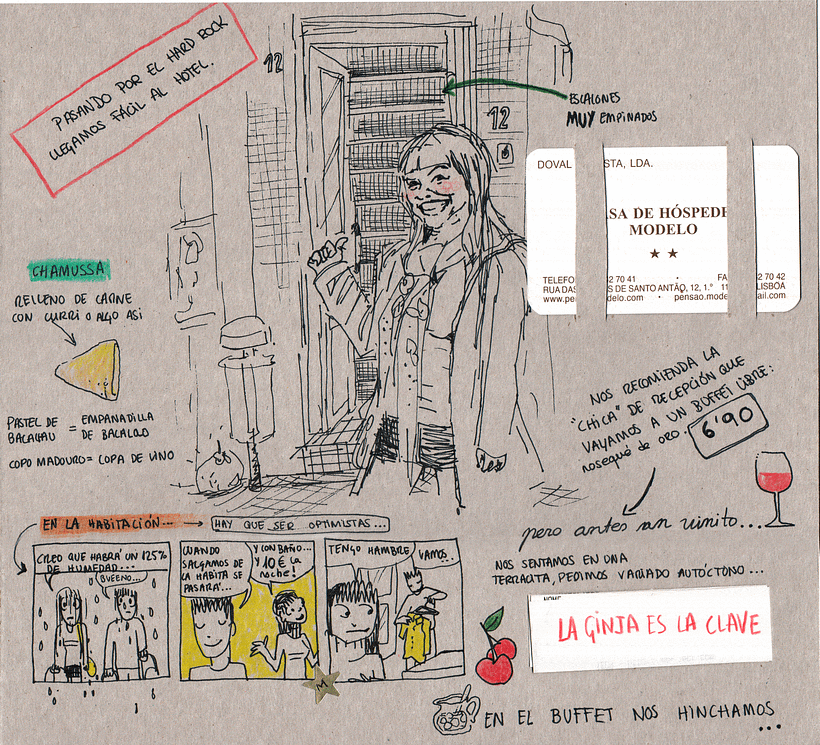 PASANDO POR EL HARD ROCK
LLEGAMOS FÁCIL AL HOTEL.
12
ESCALONES
MUY EMPINADOS
12
DOVAL
STA, LDA.
SA DE HÓSPEDE
MODELO
★ ★
TELEFO
2 70 41
•
FA
2 70 42
RUA DAS
S DE SANTO ANTÃO, 12, 1.º
11
LISBOA
www.pe
odelo.com
•
pensao.mode
ail.com
CHAMUSSA
RELLENO DE CARNE
CON CURRI O ALGO ASÍ
PASTEL DE
BACALHAU
= EMPANADILLA
DE BACALAO
COPO MADOURO = COPA DE VINO
NOS RECOMIENDA LA
"CHICA" DE RECEPCIÓN QUE
VAYAMOS A UN BUFFET LIBRE:
nosequé de oro.
6'90
pero antes un vinito...
NOS SENTAMOS EN UNA
TERRACITA, PEDIMOS VARIADO AUTÓCTONO...
EN LA HABITACIÓN...
HAY QUE SER OPTIMISTAS...
CREO QUE HABRÁ UN 125%
DE HUMEDAD...
BUEENO...
CUANDO
SALGAMOS DE
LA HABITA SE
PASARÁ...
Y CON BAÑO...
Y 10 € LA
noche!
TENGO HAMBRE
VAMOS..
M
LA GINJA ES LA CLAVE
EN EL BUFFET NOS HINCHAMOS
...